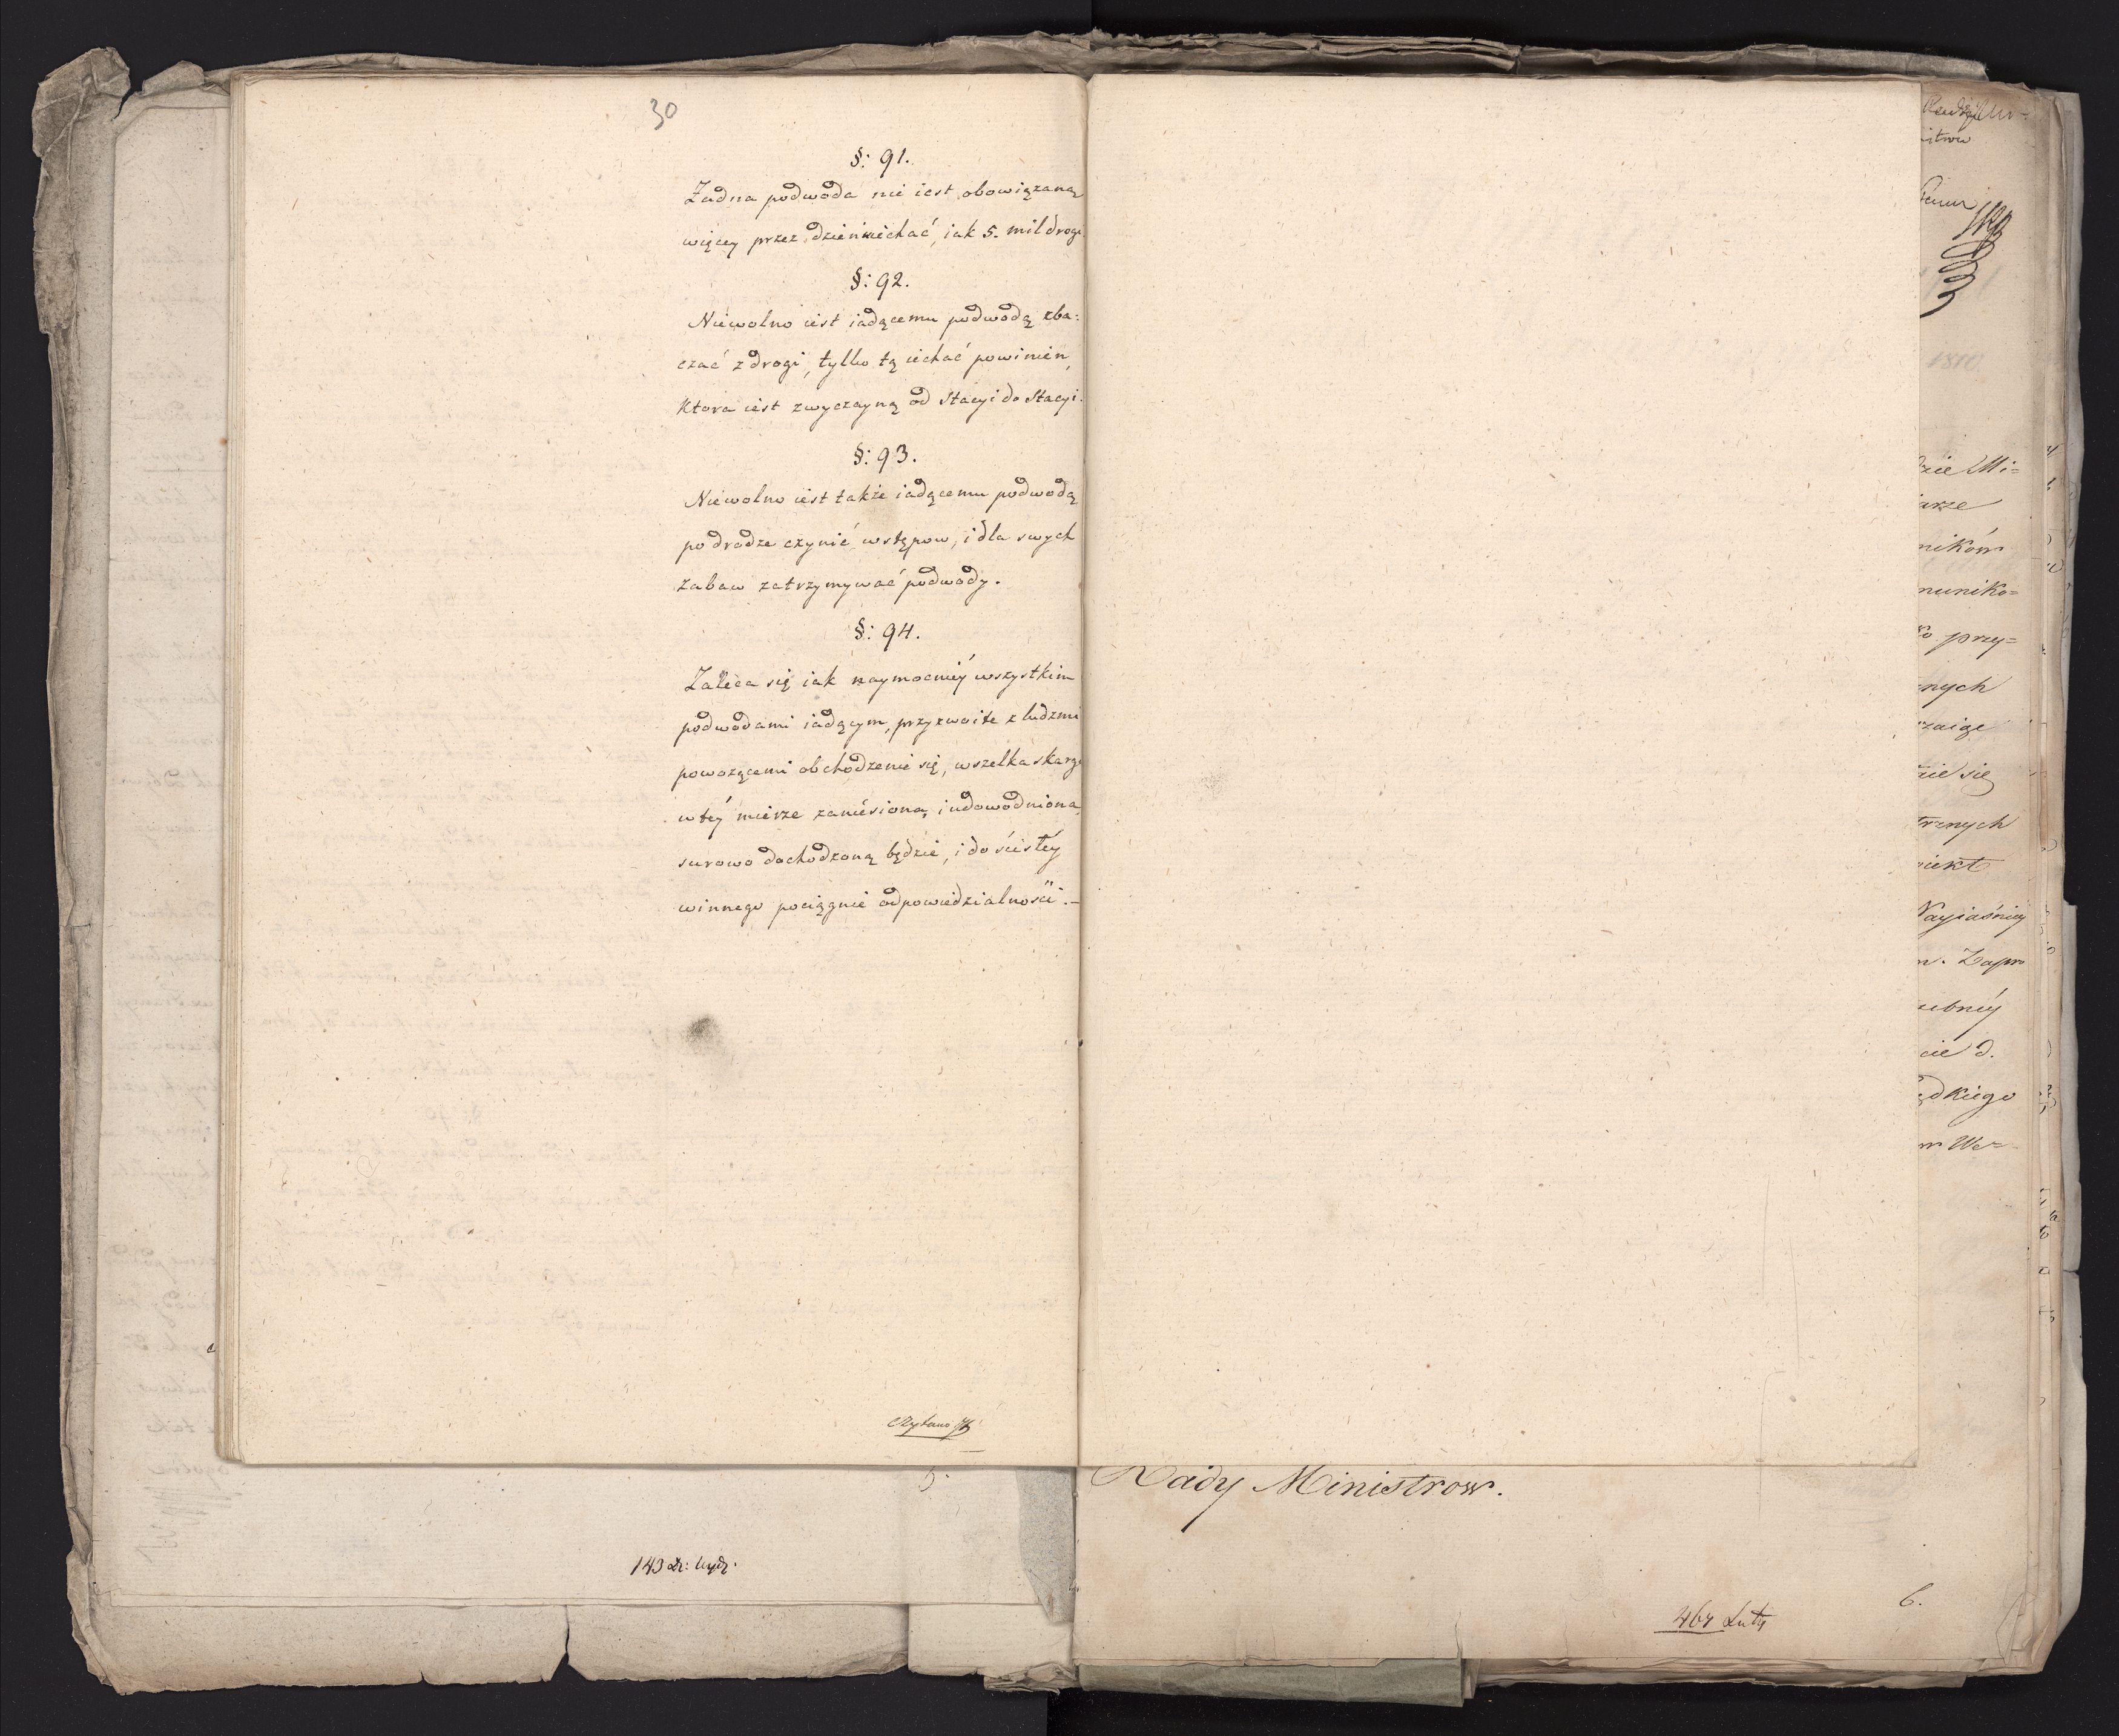 30
§: 91.
Żadna podwoda nie iest obowiązaną
więcey przez dzień iechać, iak 5. mil drogi.
§: 92.
Niewolno iest iadącemu podwodą zba:
czać z drogi, tylko tą iechać powinien,
Ktora iest zwyczayną od Stacyi do Stacyi.
§: 93.
Niewolno iest także iadącemu podwodą
po drodze czynić wstępow, i dla swych
zabaw zatrzymywać podwody.
§: 94.
Zaleca się iak naymocniéy wszystkim
podwodami iadącym, przyzwoite z ludzmi
powozącemi obchodzenie się, wszelka skarga
w téy mierze zaniesiona, i udowodniona,
surowo dochodzoną będzie, i do ścisłéy
winnego pociągnie odpowiedzialności.–
Czytano
5.
143
Rady Ministrow.
467 Luty
6.
itwa
1810.
zie Mi=
arze
ników
muniko=
ko przy=
nych
zie się
trznych
iekt
Nayiaśniey
m. Zapro
ebnéy
cie d.
ędkiego